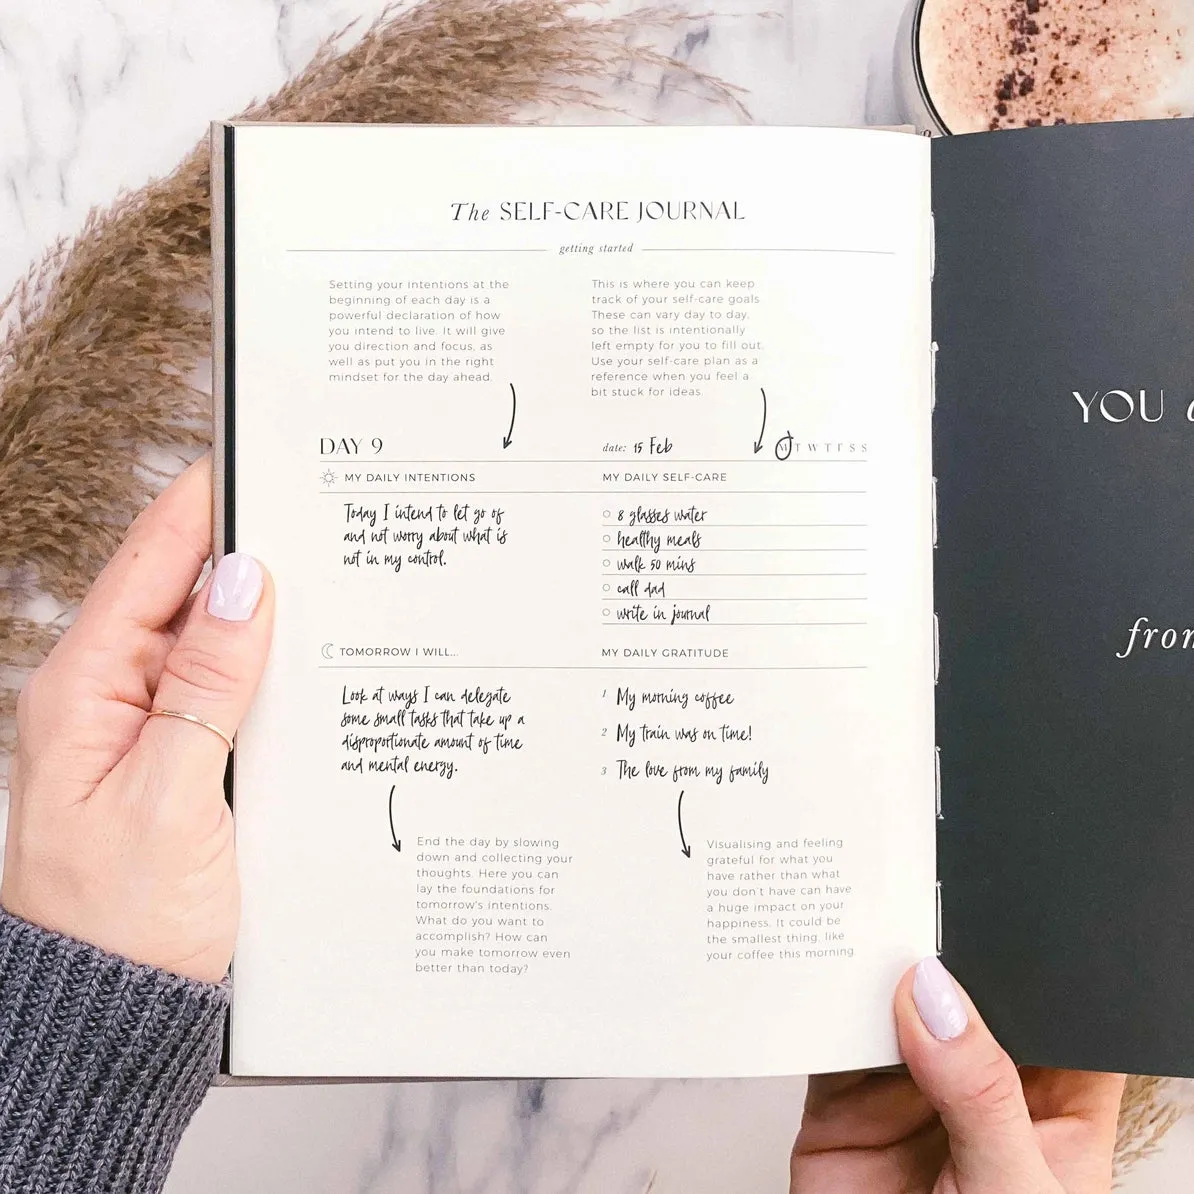 The SELF-CARE JOURNAL
getting started
Setting your intentions at the
beginning of each day is a
powerful declaration of how
you intend to live. It will give
you direction and focus, as
well as put you in the right
mindset for the day ahead.
This is where you can keep
track of your self-care goals
These can vary day to day,
so the list is intentionally
left empty for you to fill out.
Use your self-care plan as a
reference when you feel a
bit stuck for ideas.
DAY 9
date: 15 Feb
M T W T F S S
MY DAILY INTENTIONS
Today I intend to let go of
and not worry about what is
not in my control.
MY DAILY SELF-CARE
8 glasses water
healthy meals
walk 50 mins
call dad
write in journal
TOMORROW I WILL...
Look at ways I can delegate
some small tasks that take up a
disproportionate amount of time
and mental energy.
MY DAILY GRATITUDE
1 My morning coffee
2 My train was on time!
3 The love from my family
End the day by slowing
down and collecting your
thoughts. Here you can
lay the foundations for
tomorrow's intentions.
What do you want to
accomplish? How can
you make tomorrow even
better than today?
Visualising and feeling
grateful for what you
have rather than what
you don't have can have
a huge impact on your
happiness. It could be
the smallest thing, like
your coffee this morning.
YOU